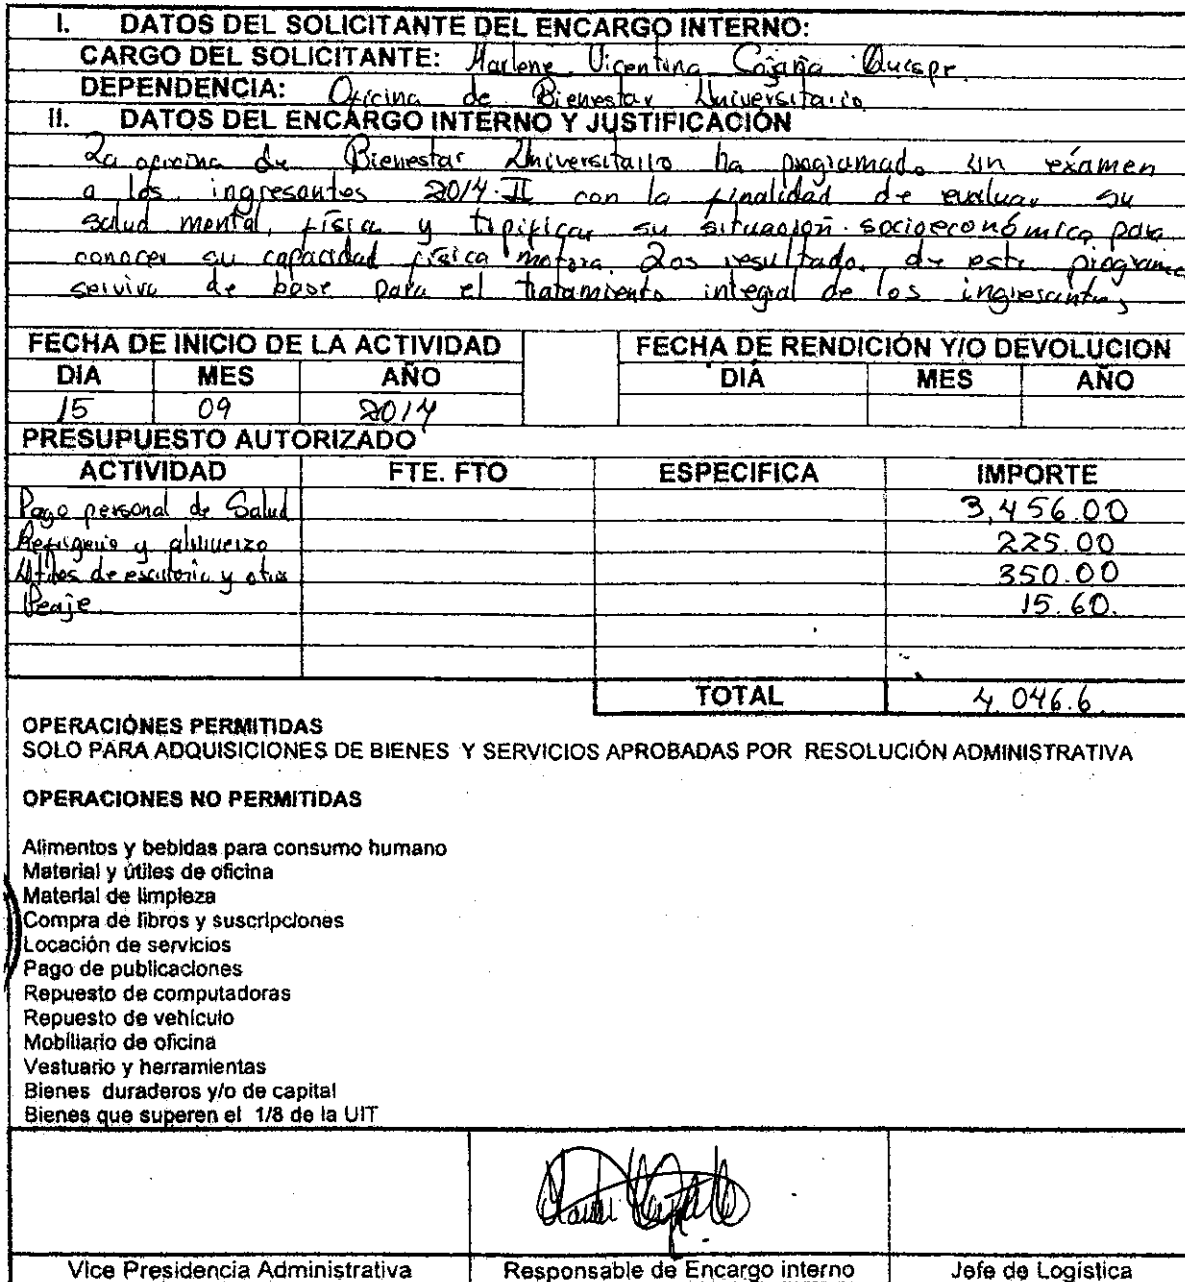 I. DATOS DEL SOLICITANTE DEL ENCARGO INTERNO:
CARGO DEL SOLICITANTE: Marlene Vicentina Cajaña Quispe
DEPENDENCIA: Oficina de Bienestar Universitario
II. DATOS DEL ENCARGO INTERNO Y JUSTIFICACIÓN
La oficina de Bienestar Universitario ha programado un exámen
a los ingresantes 2014-II con la finalidad de evaluar su
salud mental, física y tipificar su situación socioeconómica para
conocer su capacidad física motora. Los resultado de este programa
servira de base para el tratamiento integral de los ingresantes
FECHA DE INICIO DE LA ACTIVIDAD FECHA DE RENDICIÓN Y/O DEVOLUCION
DIA MES AÑO DIA MES AÑO
15 09 2014
PRESUPUESTO AUTORIZADO
ACTIVIDAD FTE. FTO ESPECIFICA IMPORTE
Pago personal de Salud 3,456.00
Refrigerio y almuerzo 225.00
Utiles de escritorio y otros 350.00
Peaje 15.60.
TOTAL 4,046.6
OPERACIÓNES PERMITIDAS
SOLO PARA ADQUISICIONES DE BIENES Y SERVICIOS APROBADAS POR RESOLUCIÓN ADMINISTRATIVA
OPERACIONES NO PERMITIDAS
Alimentos y bebidas para consumo humano
Material y útiles de oficina
Material de limpieza
Compra de libros y suscripciones
Locación de servicios
Pago de publicaciones
Repuesto de computadoras
Repuesto de vehículo
Mobiliario de oficina
Vestuario y herramientas
Bienes duraderos y/o de capital
Bienes que superen el 1/8 de la UIT
Vice Presidencia Administrativa Responsable de Encargo interno Jefe de Logística